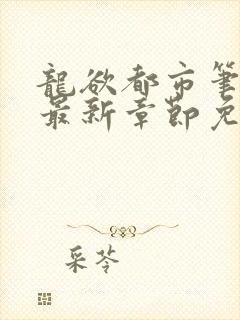 龍欲都市筆
最新章節免
采苓